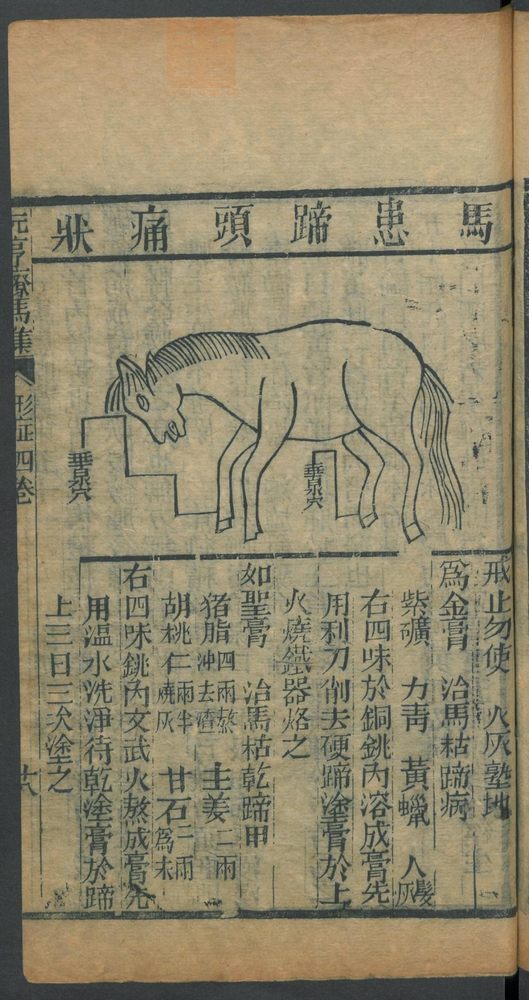 馬患蹄頭痛狀
垂泉穴
垂泉穴
戒止勿使 火灰塾地
爲金膏 治馬枯蹄病
紫礦 力青 黃蠟 人髮灰
右四味於銅銚內溶成膏先
用利刀削去硬蹄塗膏於上
火燒鐵器烙之
如聖膏 治馬枯乾蹄甲
猪脂四兩熬冲去渣 主姜二兩
胡桃仁一兩半燒灰 甘石二兩爲末
右四味銚內文武火熬成膏先
用溫水洗淨待乾塗膏於蹄
上三日三次塗之
元亨療馬集 形症四卷